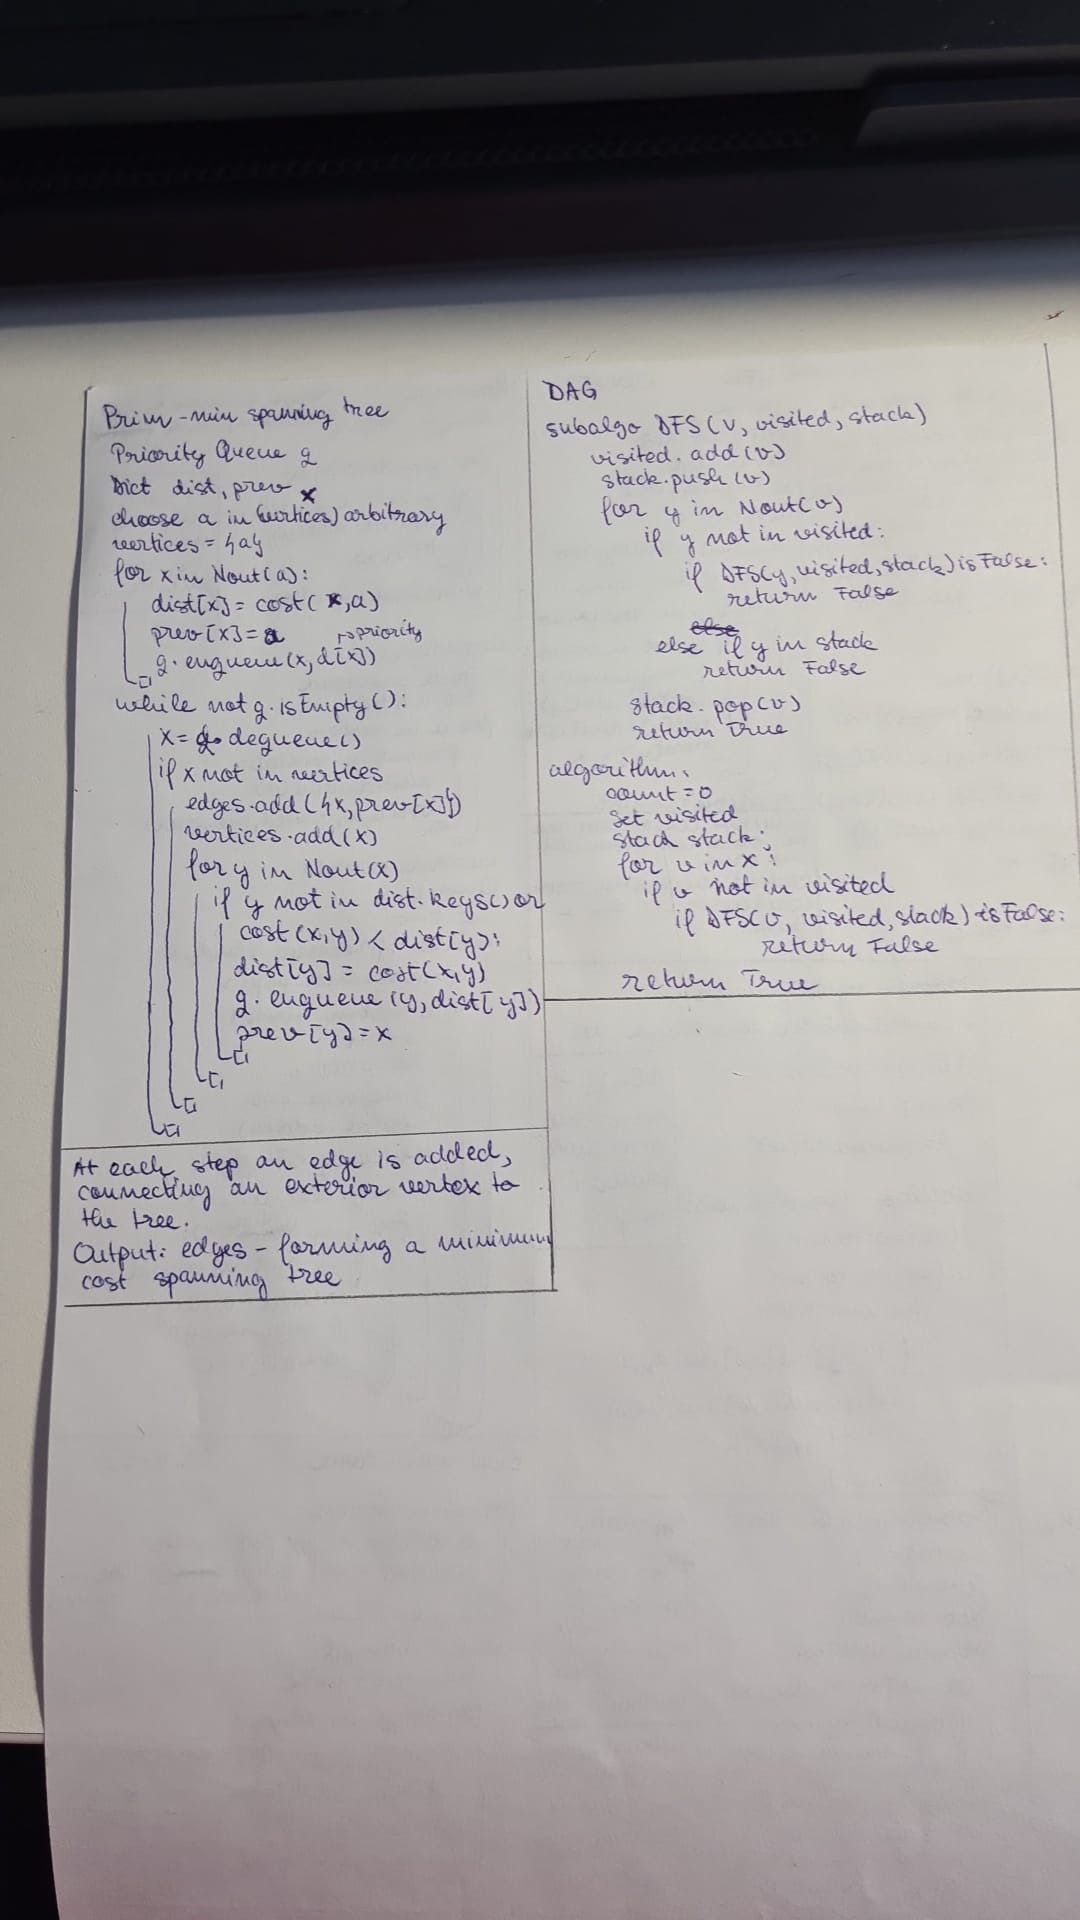 Prim - min spanning tree
Priority Queue q
Dict dist, prev
choose a in (vertices) arbitrary
X
vertices = {a}
for x in Nout(a):
dist[x] = cost(x,a)
prev[x] = a
→ priority
q. enqueue(x, d[x])
while not q. isEmpty():
x = q. dequeue()
if x not in vertices
edges.add({x, prev[x]})
vertices.add(x)
for y in Nout(x)
if y not in dist.keys() or
cost(x,y) < dist[y]:
dist[y] = cost(x,y)
q. enqueue(y, dist[y])
prev[y] = x
At each step an edge is added,
connecting an exterior vertex to
the tree.
Output: edges - forming a minimum
cost spanning tree
DAG
subalgo DFS(v, visited, stack)
visited. add(v)
stack.push(v)
for y in Nout(v)
if y not in visited:
if DFS(y, visited, stack) is False:
return False
else
else if y in stack
return False
stack. pop(v)
return True
algorithm:
count = 0
set visited
stack stack;
for v in X:
if v not in visited
if DFS(v, visited, stack) is False:
return False
return True